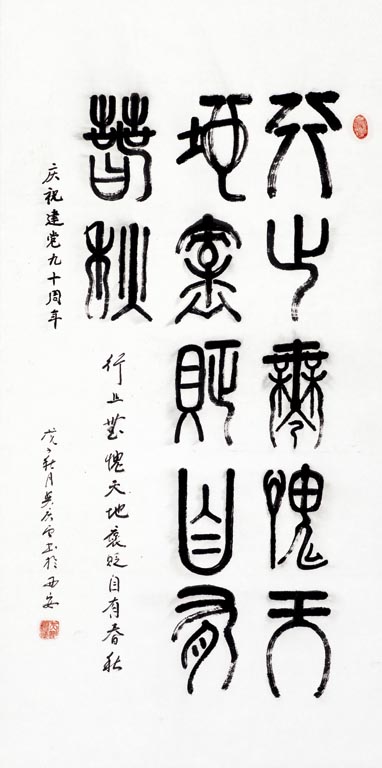 行止無愧天
地褒貶自有
春秋
行止無愧天地褒贬自有春秋
庆祝建党九十周年
戊子秋月书於西安